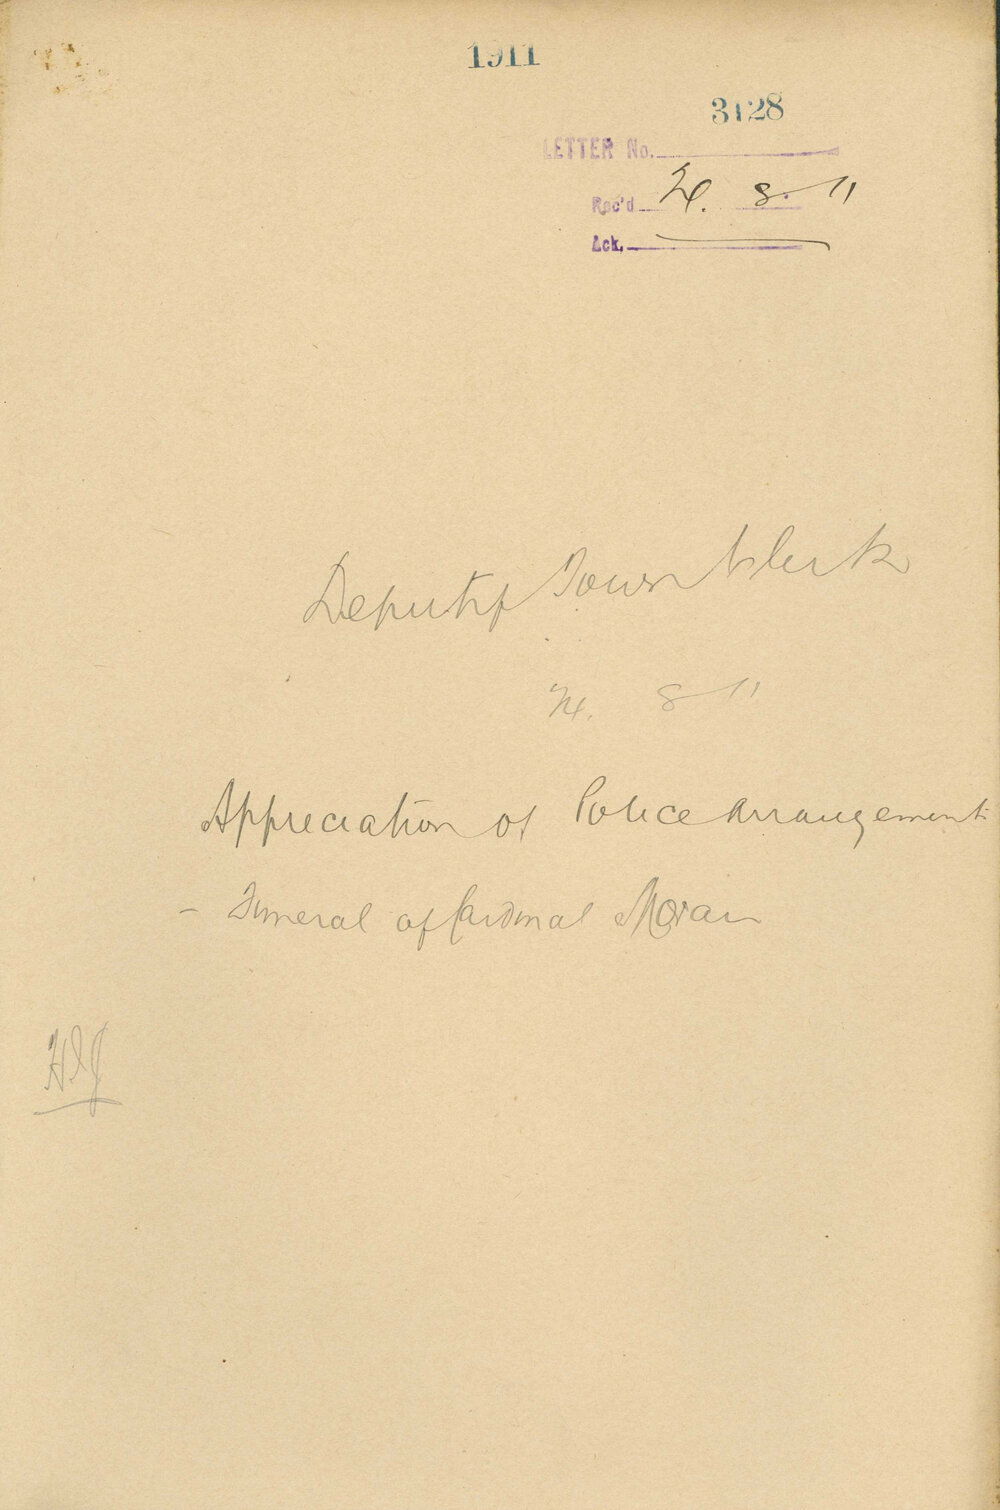 1911
3128
LETTER No.
Rec'd 24. 8. 11
Ack.
Deputy Town Clerk
24. 8 11
Appreciation of Police arrangements
- Funeral of Cardinal Moran